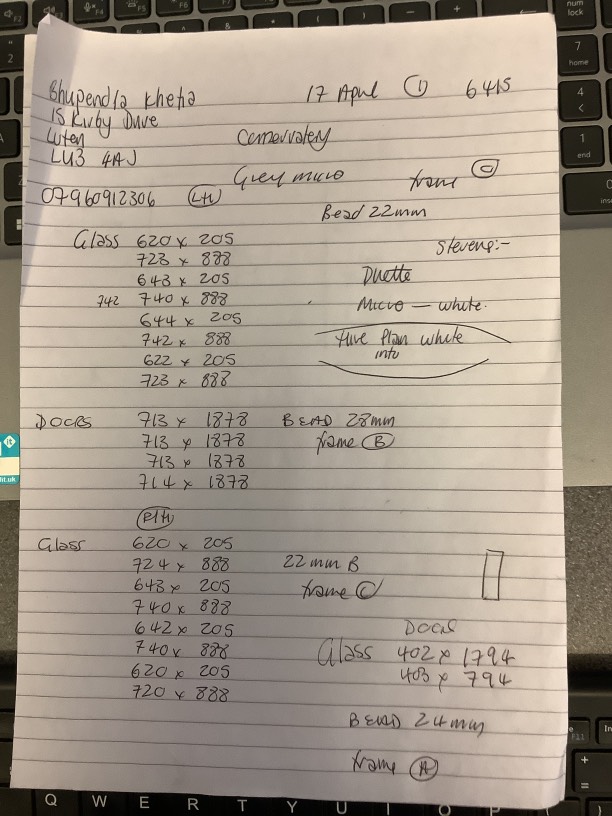 Bhupendra Kheta 17 April ① 6415
15 Kirby Drive
Luton
LU3 4AJ
Conservatory
Grey micro frame Ⓒ
07960912306 LH
Bead 22mm
Glass 620 x 205
Stevens:-
723 x 888
643 x 205 Duette
742 740 x 888 Micro — white.
644 x 205
742 x 888 Hive Plan white
into
622 x 205
723 x 888
DOORS 713 x 1878 BEAD 28mm
713 x 1878 frame Ⓑ
713 x 1878
714 x 1878
RH
Glass 620 x 205
724 x 888 22mm B
643 x 205 frame Ⓒ
740 x 888
642 x 205 Doors
740 x 888 Glass 402 x 1794
620 x 205 403 x 794
720 x 888
BEAD 24mm
frame Ⓐ
Q W E R T Y U I O P
num
lock
7
home
4
1
end